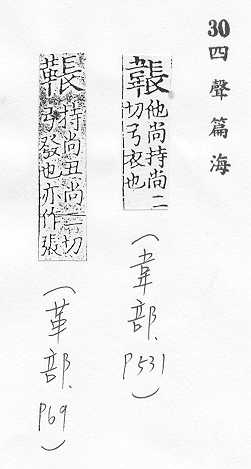 30 四聲篇海
韔 他尚持尚二
切弓衣也
(韋部. P531)
䩨 持尚丑尚二切
弓發也亦作張
(革部. P69)